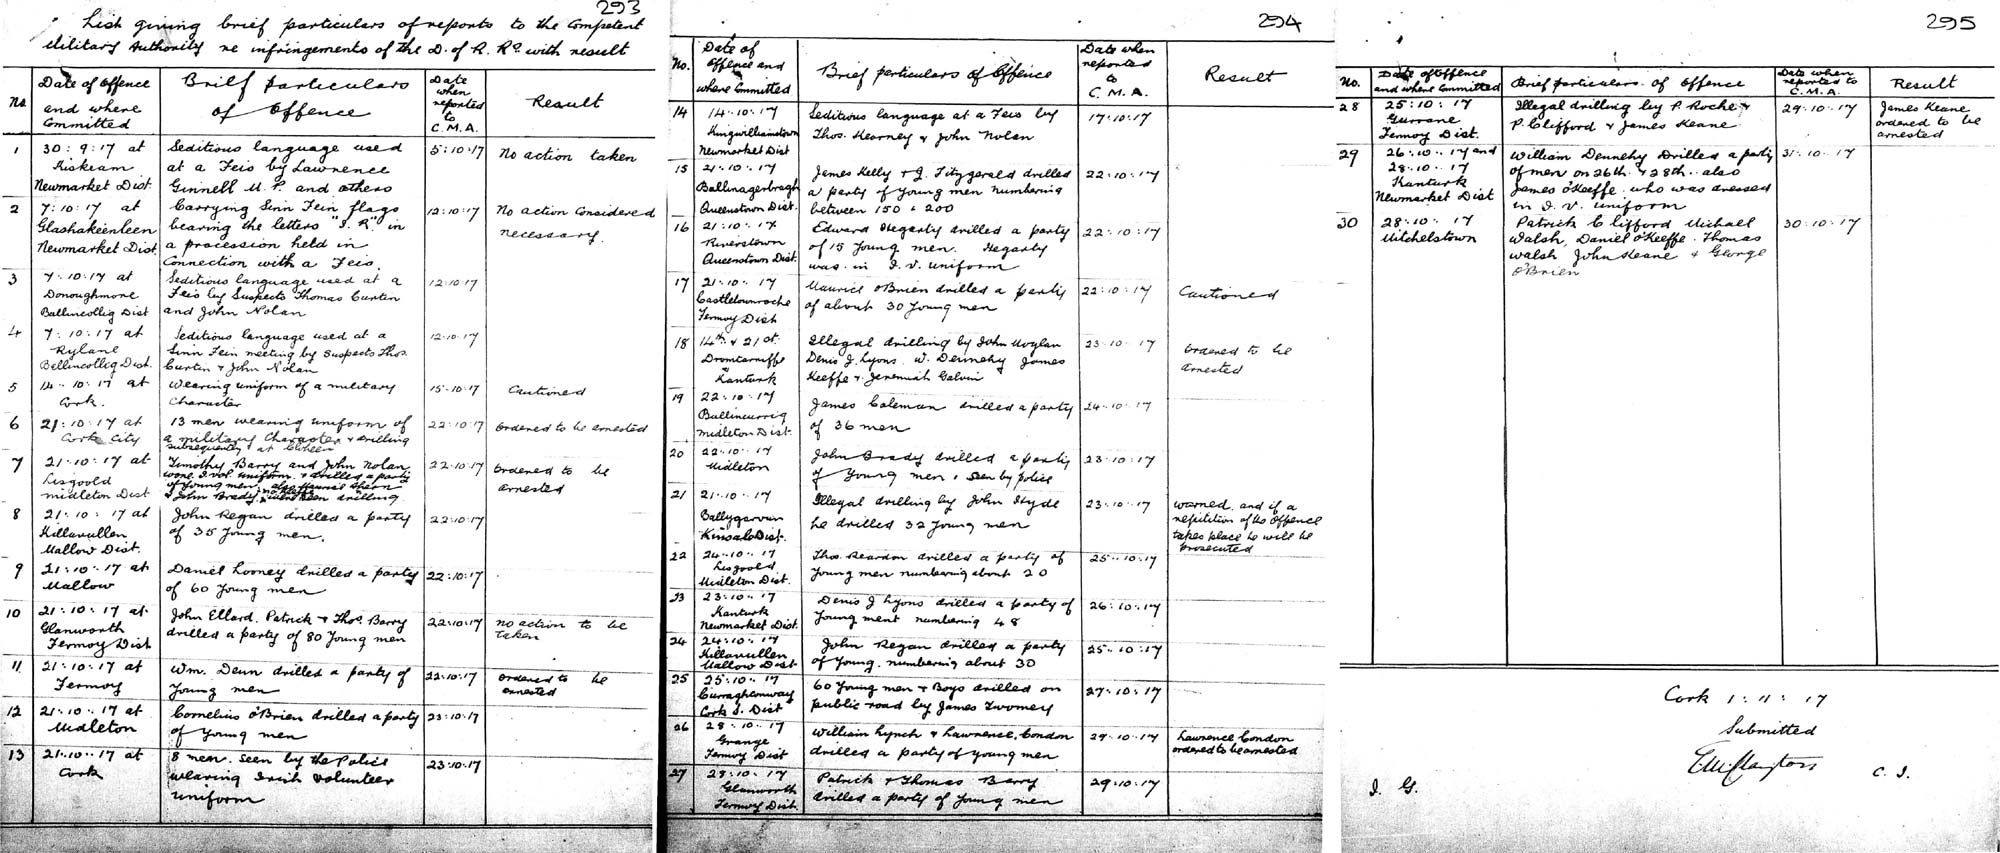 293
List giving brief particulars of reports to the Competent
Military Authority re infringements of the D. of R. Rs. with result
No
Date of Offence
and where
Committed
Brief particulars
of Offence
Date
when
reported
to
C.M.A.
Result
1
30:9:17 at
Kiskeam
Newmarket Dist.
Seditious language used
at a Feis by Lawrence
Ginnell M.P. and others
5:10:17
No action taken
2
7:10:17 at
Glashakeenleen
Newmarket Dist.
Carrying Sinn Fein flags
bearing the letters "I.R." in
a procession held in
Connection with a Feis.
12:10:17
No action Considered
necessary.
3
7:10:17 at
Donoughmore
Ballincollig Dist
Seditious language used at a
Feis by Suspects Thomas Curtin
and John Nolan
12:10:17
4
7:10:17 at
Rylane
Bellincollig Dist.
Seditious language used at a
Sinn Fein meeting by suspects Thos.
Curtin & John Nolan
12:10:17
5
14:10:17 at
Cork.
Wearing uniform of a military
Character
15:10:17
Cautioned
6
21:10:17 at
Cork City
13 men wearing uniform of
a military Character & drilling
subsequently at
22:10:17
ordered to be arrested
7
21:10:17 at
Lisgoold
Midleton Dist
Timothy Barry and John Nolan
wore I. Vol. uniform & drilled a party
of young men, also Maurice Ahern
& John Brady were seen drilling
22:10:17
ordered to be
arrested
8
21:10:17 at
Killavullen
Mallow Dist.
John Regan drilled a party
of 35 Young men.
22:10:17
9
21:10:17 at
Mallow
Daniel Looney drilled a party
of 60 Young men
22:10:17
10
21:10:17 at
Glanworth
Fermoy Dist
John Ellard, Patrick & Thos. Barry
drilled a party of 80 Young men
22:10:17
no action to be
taken
11
21:10:17 at
Fermoy
Wm. Deun drilled a party of
Young men
22:10:17
ordered to be
arrested
12
21:10:17 at
Midleton
Cornelius O'Brien drilled a party
of Young men
23:10:17
13
21:10:17 at
Cork
8 men seen by the Police
wearing Irish Volunteer
uniform
23:10:17
294
No.
Date of
Offence and
where Committed
Brief particulars of Offence
Date when
reported
to
C.M.A.
Result
14
14:10:17
Kingwilliamstown
Newmarket Dist
Seditious language at a Feis by
Thos. Kearney & John Nolan
17:10:17
15
21:10:17
Ballinagerbragh
Queenstown Dist.
James Kelly & J. Fitzgerald drilled
a party of Young men numbering
between 150 & 200
22:10:17
16
21:10:17
Riverstown
Queenstown Dist.
Edward Hegarty drilled a party
of 15 Young men. Hegarty
was in I.V. uniform
22:10:17
17
21:10:17
Castletownroche
Fermoy Dist
Maurice O'Brien drilled a party
of about 30 Young men
22:10:17
Cautioned
18
14th & 21st
Dromtarriffe
Kanturk
Illegal drilling by John Moylan
Denis J. Lyons. W. Dennehy James
Keeffe & Jeremiah Galvin
23:10:17
ordered to be
arrested
19
22:10:17
Ballincurrig
Midleton Dist.
James Coleman drilled a party
of 36 men
24:10:17
20
22:10:17
Midleton
John Brady drilled a party
of Young men, seen by police
23:10:17
21
21:10:17
Ballygarvan
Kinsale Dist.
Illegal drilling by John Hyde
he drilled 32 Young men
23:10:17
warned, and if a
repitition of his Offence
takes place he will be
prosecuted
22
24:10:17
Lisgoold
Midleton Dist.
Thos. Reardon drilled a party of
Young men numbering about 20
25:10:17
23
23:10:17
Kanturk
Newmarket Dist.
Denis J Lyons drilled a party of
Young ment numbering 48
26:10:17
24
24:10:17
Killavullen
Mallow Dist
John Regan drilled a party
of Young, numbering about 30
25:10:17
25
25:10:17
Curraghconway
Cork S. Dist
60 Young men & Boys drilled on
public road by James Twomey
27:10:17
26
28:10:17
Grange
Fermoy Dist
William Lynch & Lawrence Condon
drilled a party of young men
29:10:17
Lawrence Condon
ordered to be arrested
27
28:10:17
Glanworth
Fermoy Dist.
Patrick & Thomas Barry
drilled a party of Young men
29:10:17
295
No.
Date of Offence
and where Committed
Brief particulars of Offence
Date when
reported to
C.M.A.
Result
28
25:10:17
Gurrane
Fermoy Dist.
Illegal drilling by P. Roche &
P. Clifford & James Keane
29:10:17
James Keane
ordered to be
arrested
29
26:10:17 and
28:10:17
Kanturk
Newmarket Dist
William Dennehy Drilled a party
of men on 26th & 28th also
James O'Keeffe who was dressed
in I.V. uniform
31:10:17
30
28:10:17
Mitchelstown
Patrick Clifford Michael
Walsh, Daniel O'Keeffe. Thomas
Walsh John Keane & George
O'Brien
30:10:17
Cork 1:11:17
Submitted
C.I.
I.G.